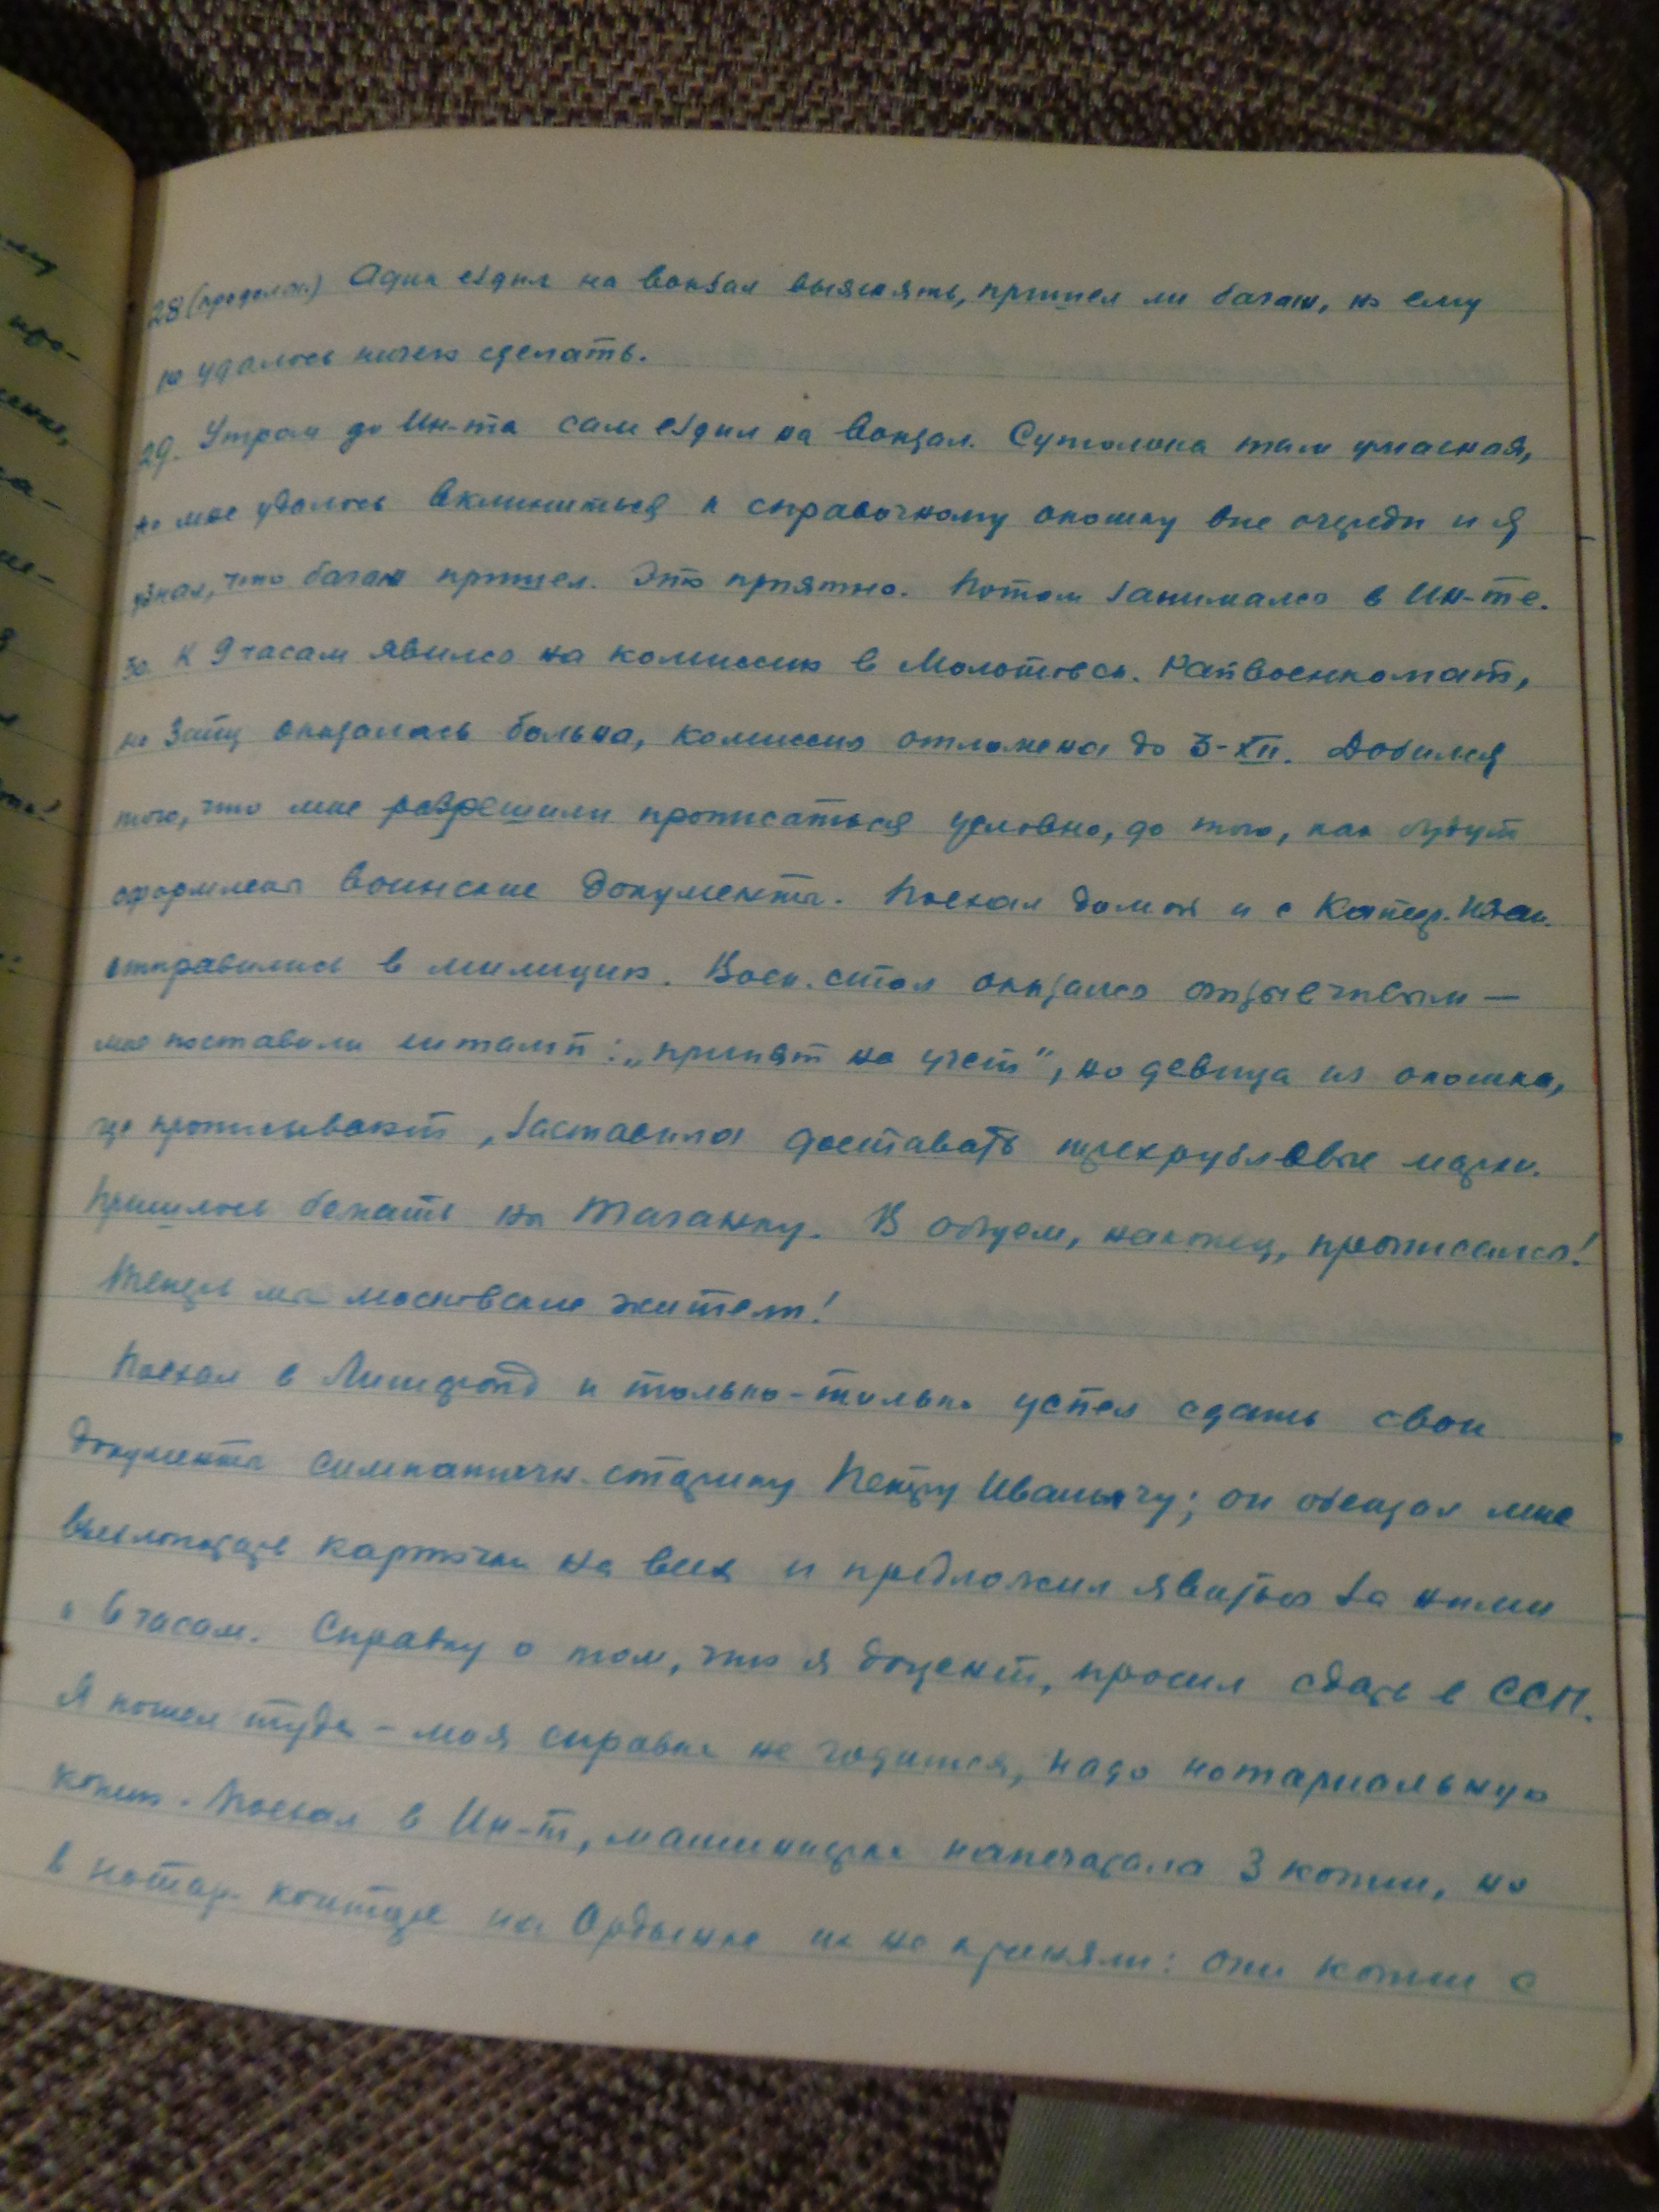 28 (продолж.) Адик ездил на вокзал выяснять, пришел ли багаж, но ему
не удалось ничего сделать.
29. Утром до Ин-та сам ездил на вокзал. Сутолока там ужасная,
но мне удалось вклиниться к справочному окошку вне очереди и я
узнал, что багаж пришел. Это приятно. Потом занимался в Ин-те.
30. К 9 часам явился на комиссию в Молотовск. Райвоенкомат,
но Зайц оказалась больна, комиссия отложена до 3-XII. Добился
того, что мне разрешили прописаться условно, до того, как будут
оформлены воинские документы. Поехал домой и с Катер. Иван.
отправились в милицию. Воен. стол оказался отзывчивым —
мне поставили штамп: „принят на учет", но девица из окошка,
где прописывают, заставила доставать трехрублевые марки.
Пришлось бежать на Таганку. В общем, наконец, прописался!
Теперь мы московские жители!
Поехал в Литфонд и только-только успел сдать свои
документы симпатичн. старику Петру Иванычу; он обещал мне
выхлопотать карточки на всех и предложил явиться за ними
к 6 часам. Справку о том, что я доцент, просил сдать в ССП.
Я пошел туда - моя справка не годится, надо нотариальную
копию. Поехал в Ин-т, машинистка напечатала 3 копии, но
в нотар. конторе на Ордынке их не приняли: они копии с